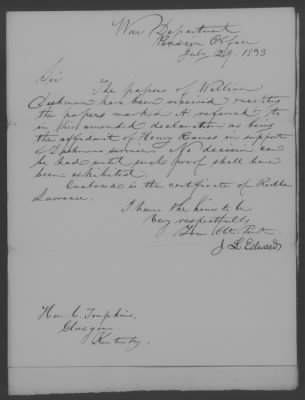 War Department
Pension Office
July 29, 1833
Sir
The papers of William
Dishman have been received except
the papers marked A. referred to
in his amended declaration as being
the affidavit of Henry Raines in support
of Dishman's service. No decision can
be had until such proof shall have
been exhibited.
Enclosed is the certificate of
Lawrence.
I have the honor to be
Very respectfully
Your Obt. Servt.
J L Edwards
Hon. C. Tompkins.
Glasgow
Kentucky.